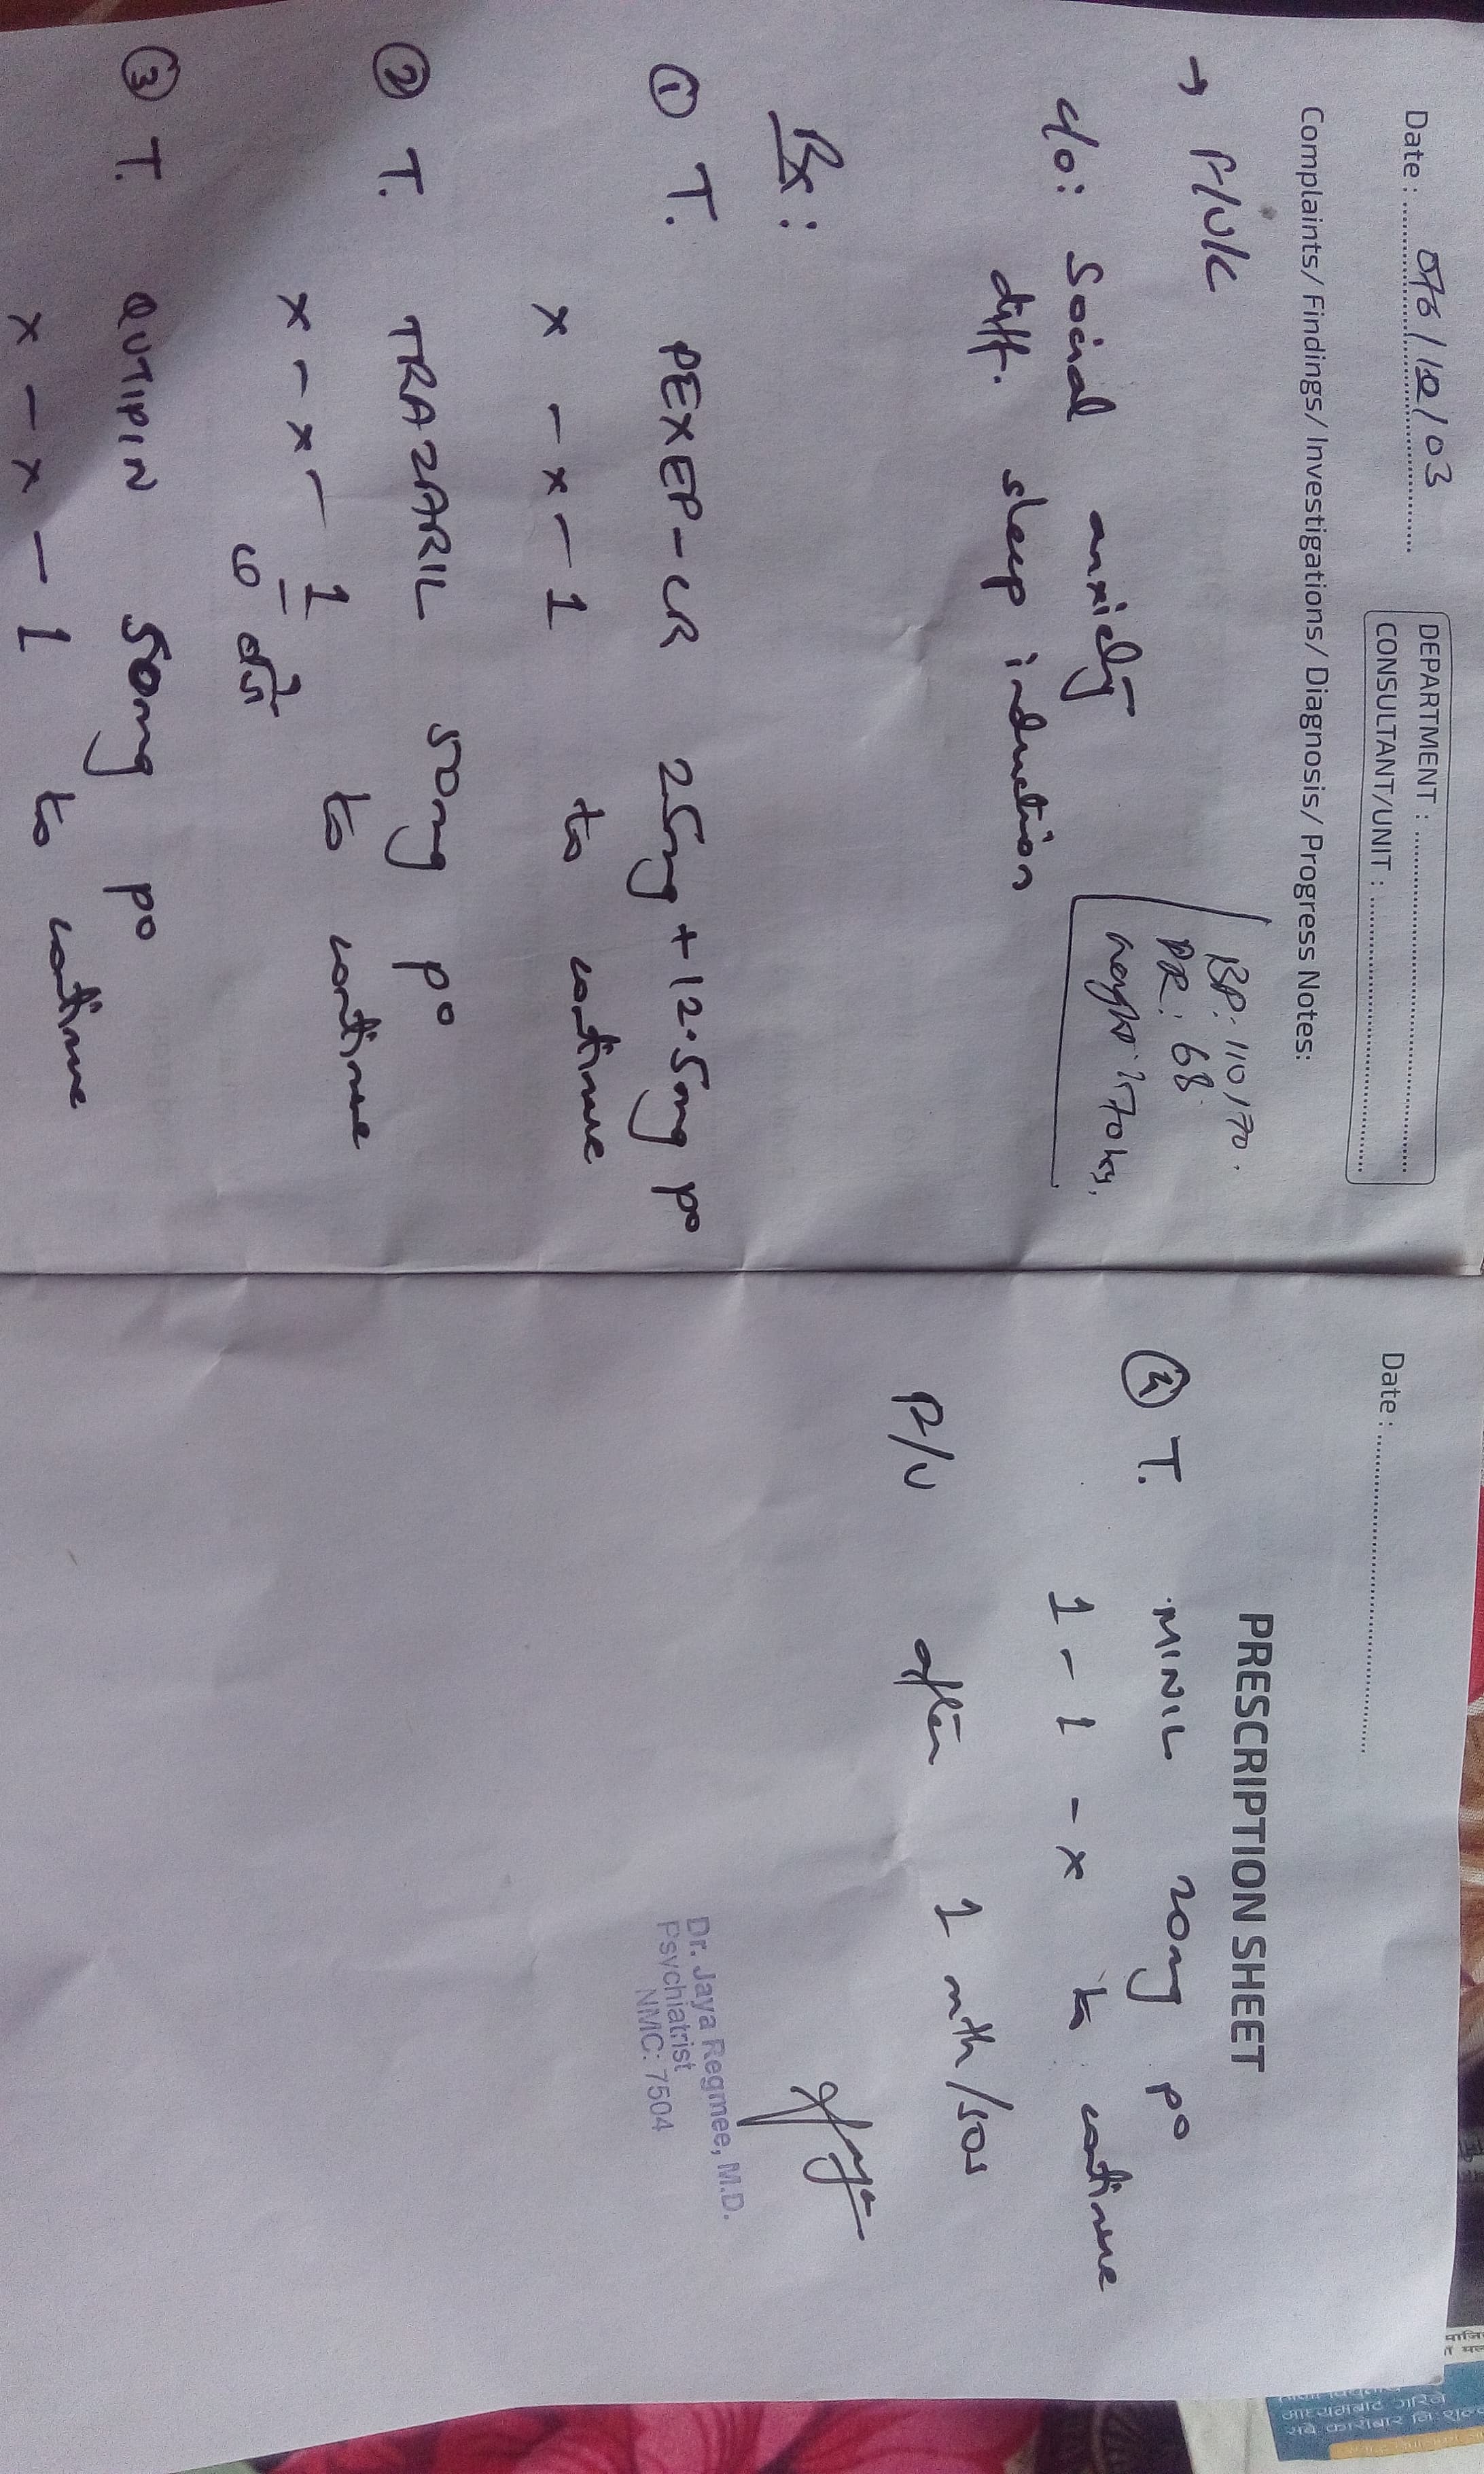 Date : 076/12/03
DEPARTMENT :
CONSULTANT/UNIT :
Complaints/ Findings/ Investigations/ Diagnosis/ Progress Notes:
→ F/U/C
BP: 110/70.
PR: 68
weight: 70 kg.
c/o: Social anxiety
diff. sleep induction
Rx:
① T. PEXEP-CR 25mg + 12.5mg po
x - x - 1 to continue
② T. TRAZARIL 50mg po
x - x - 1 to continue
③ T. QUTIPIN 50mg po
x - x - 1 to continue
Date :
PRESCRIPTION SHEET
④ T. MINIL 20mg po
1 - 1 - x to continue
F/U after 1 mth/sos
Dr. Jaya Regmee, M.D.
Psychiatrist
NMC: 7504